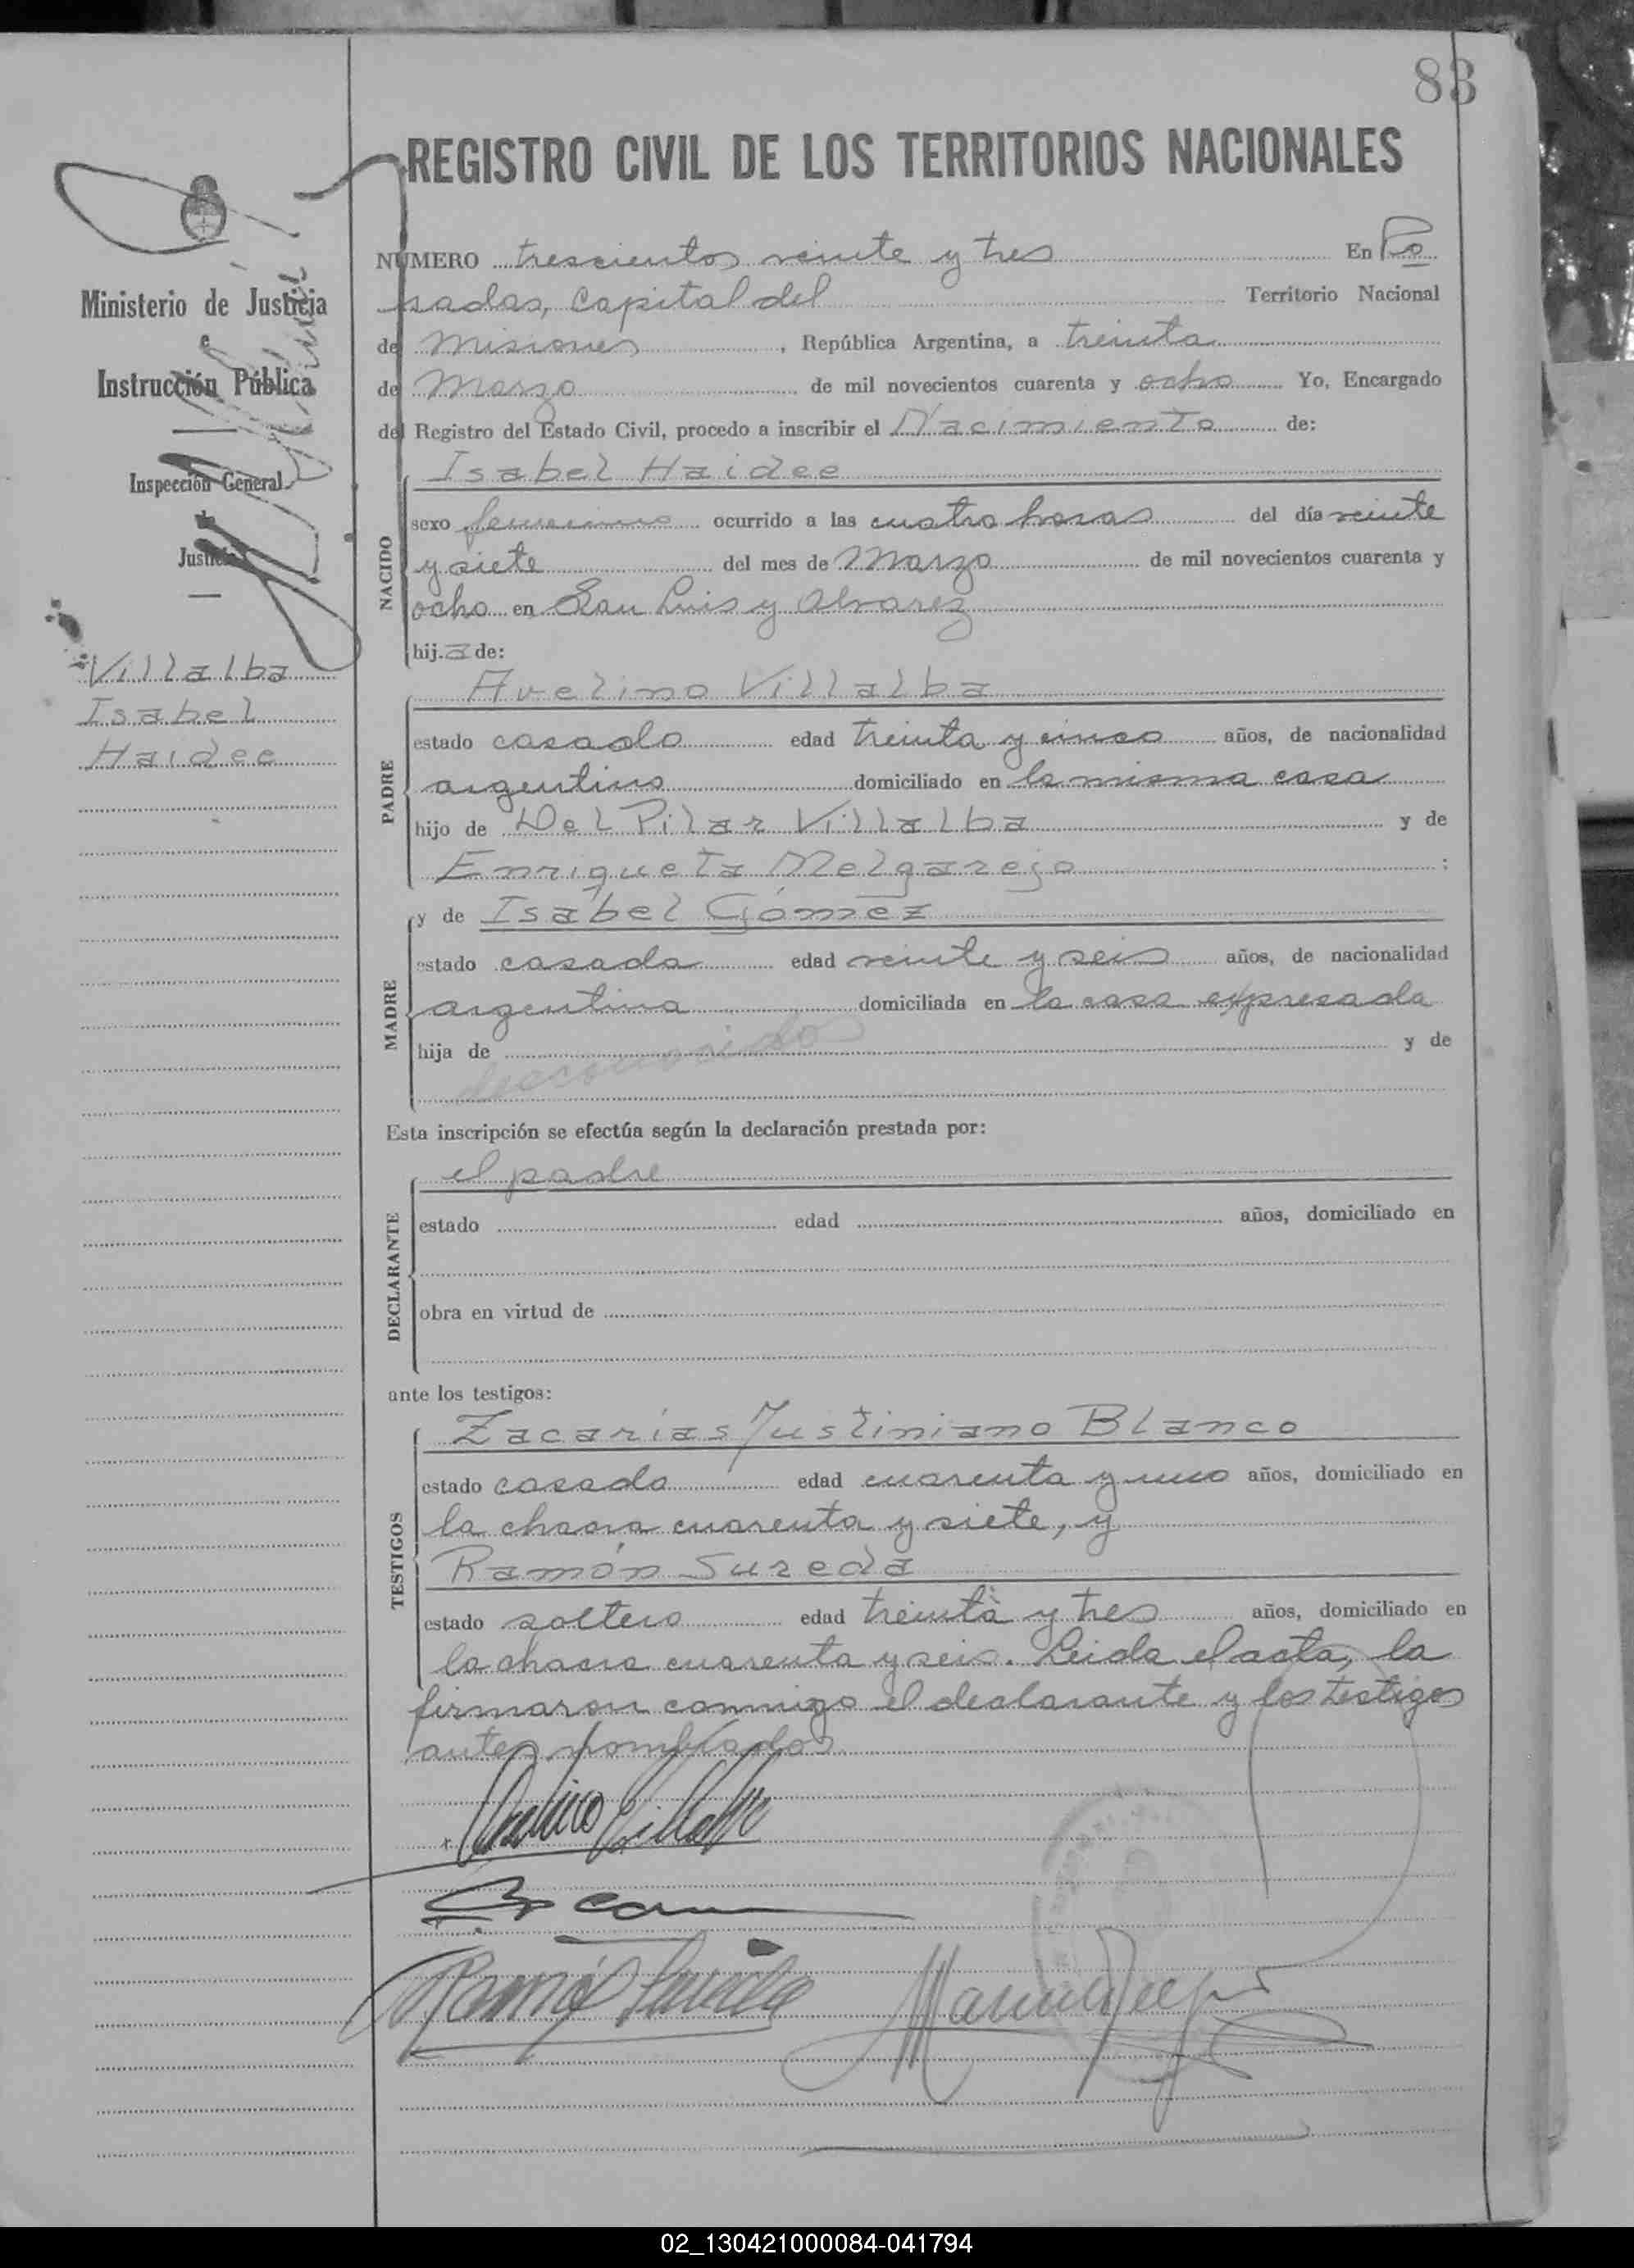 83
REGISTRO CIVIL DE LOS TERRITORIOS NACIONALES
Ministerio de Justicia
e
Instrucción Pública
Inspección General
de
Justicia
Villalba
Isabel
Haidee
NUMERO trescientos veinte y tres En Po
sadas, Capital del Territorio Nacional
de Misiones, República Argentina, a treinta
de Marzo de mil novecientos cuarenta y ocho Yo, Encargado
del Registro del Estado Civil, procedo a inscribir el Nacimiento de:
Isabel Haidee
NACIDO
sexo femenino ocurrido a las cuatro horas del día veinte
y siete del mes de Marzo de mil novecientos cuarenta y
ocho en San Luis y Alvarez
hija de:
Avelino Villalba
PADRE
estado casado edad treinta y cinco años, de nacionalidad
argentino domiciliado en la misma casa
hijo de Del Pilar Villalba y de
Enriqueta Melgarejo ;
MADRE
y de Isabel Gómez
estado casada edad veinte y seis años, de nacionalidad
argentina domiciliada en la casa expresada
hija de y de
desconocidos
Esta inscripción se efectúa según la declaración prestada por:
el padre
DECLARANTE
estado edad años, domiciliado en
obra en virtud de
ante los testigos:
Zacarías Justiniano Blanco
TESTIGOS
estado casado edad cuarenta y uno años, domiciliado en
la chacra cuarenta y siete, y
Ramón Sureda
estado soltero edad treinta y tres años, domiciliado en
la chacra cuarenta y seis. Leida el acta, la
firmaron conmigo el declarante y los testigos
antes nombrados
Avelino Villalba
Ramón Sureda
02_130421000084-041794